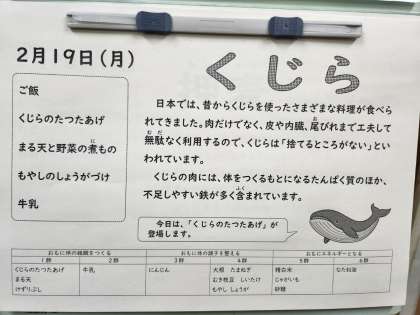 2月19日(月)
くじら
ご飯
くじらのたつたあげ
まる天と野菜の煮もの
もやしのしょうがづけ
牛乳
日本では、昔からくじらを使ったさまざまな料理が食べら
れてきました。肉だけでなく、皮や内臓、尾びれまで工夫して
無駄なく利用するので、くじらは「捨てるところがない」とい
われています。
くじらの肉には、体をつくるもとになるたんぱく質のほか、
不足しやすい鉄が多く含まれています。
今日は、「くじらのたつたあげ」が
登場します。
おもに体の組織をつくる おもに体の調子を整える おもにエネルギーとなる
1群 2群 3群 4群 5群 6群
くじらのたつたあげ 牛乳 にんじん 大根 たまねぎ 精白米 なたね油
まる天 むき枝豆 しいたけ じゃがいも
けずりぶし もやし しょうが 砂糖